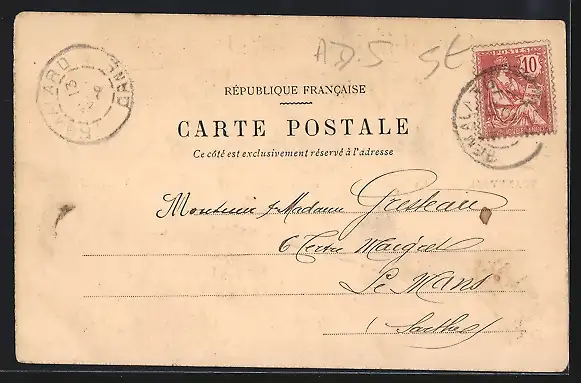 A.D.S St
POSTES
10
RÉPUBLIQUE FRANÇAISE
CARTE POSTALE
Ce côté est exclusivement réservé à l'adresse
Monsieur & Madame
6 Tertre
Le Mans
(Sarthe)